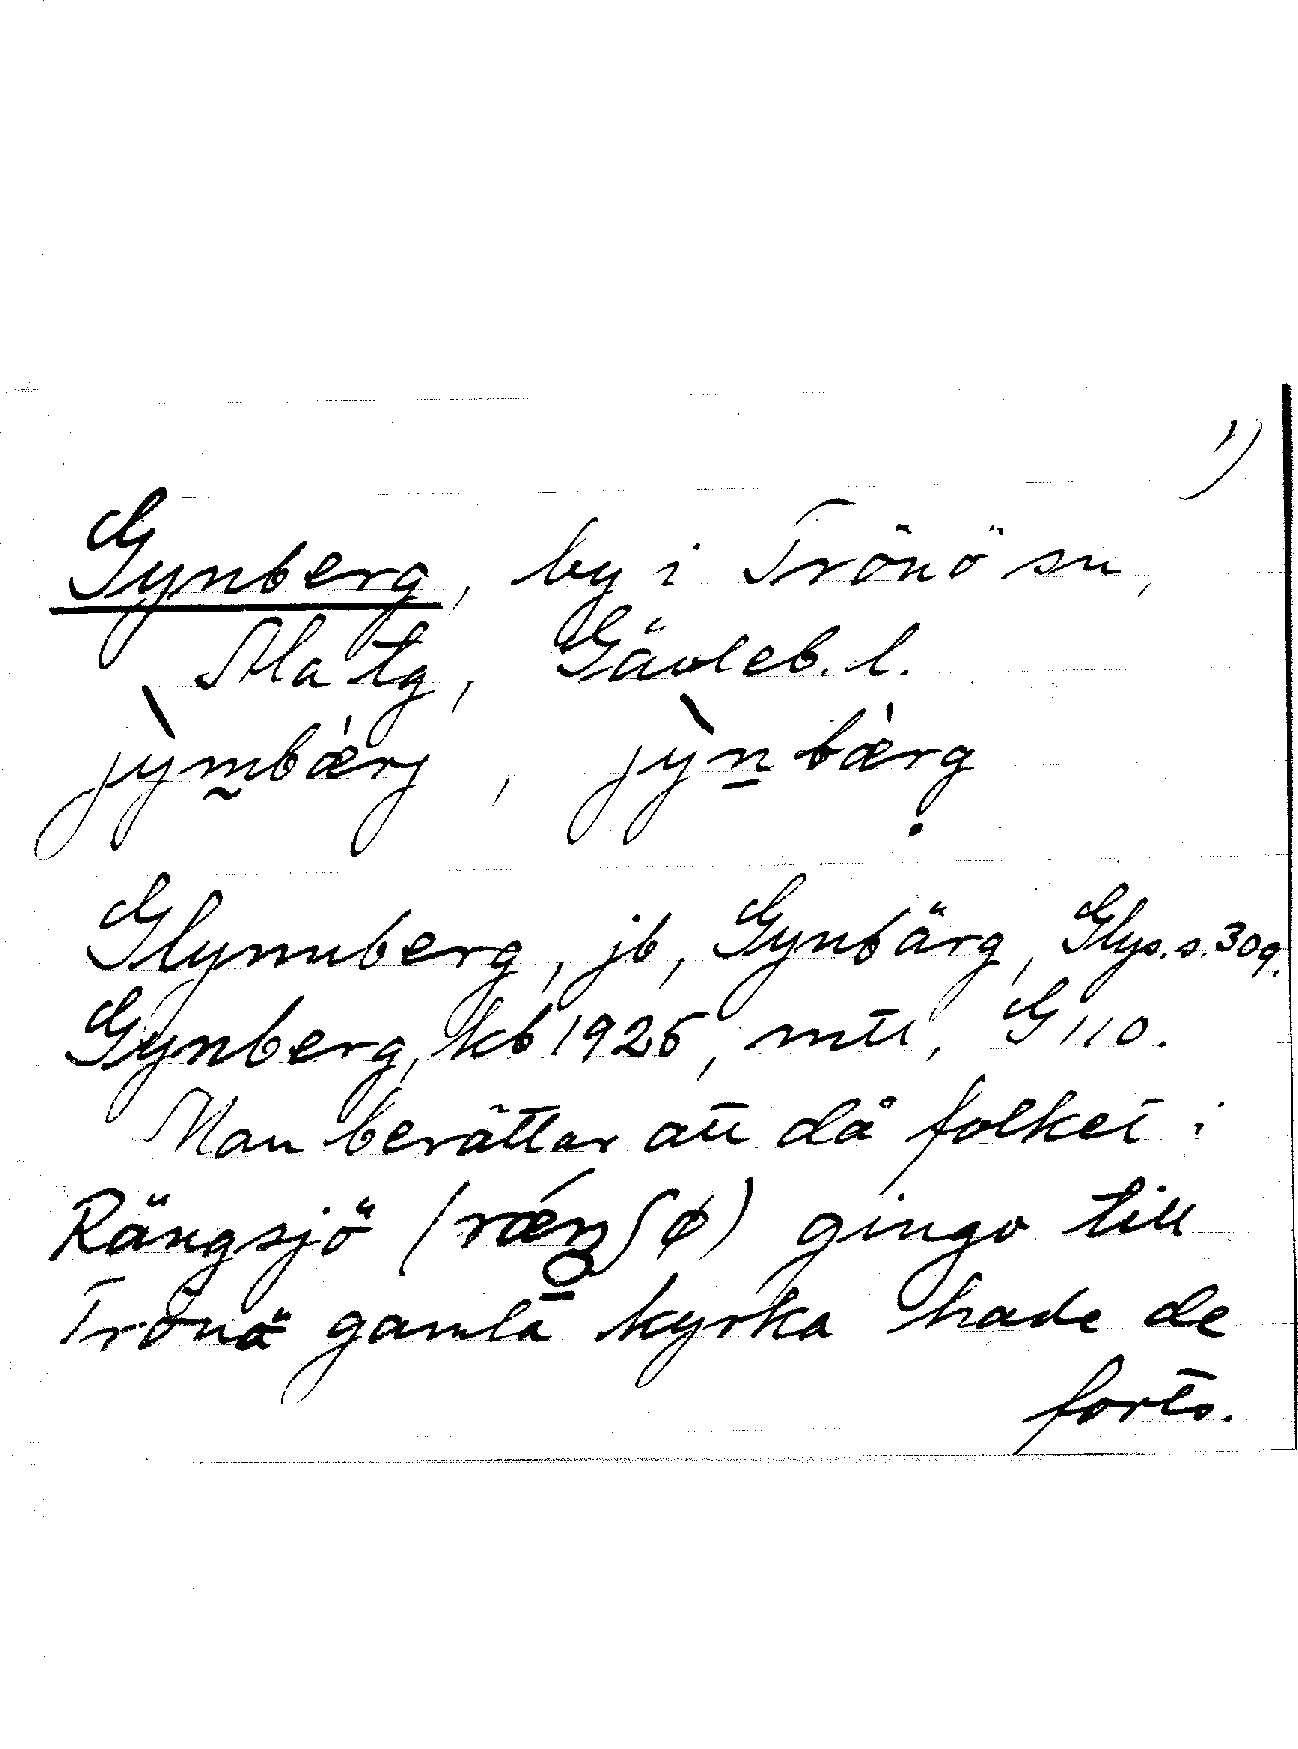 1)
Gynberg, by i Trönö sn,
Ala tg, Gävleb. l.
jỳmbǽrj, jỳnbǽrg
Glynnberg, jb, Gynbärg, Glys. s. 309.
Gynberg, kb 1926, mtl, G 110.
Man berättar att då folket i
Rängsjö (rǽŋʃø) gingo till
Trönö gamla kyrka hade de
forts.